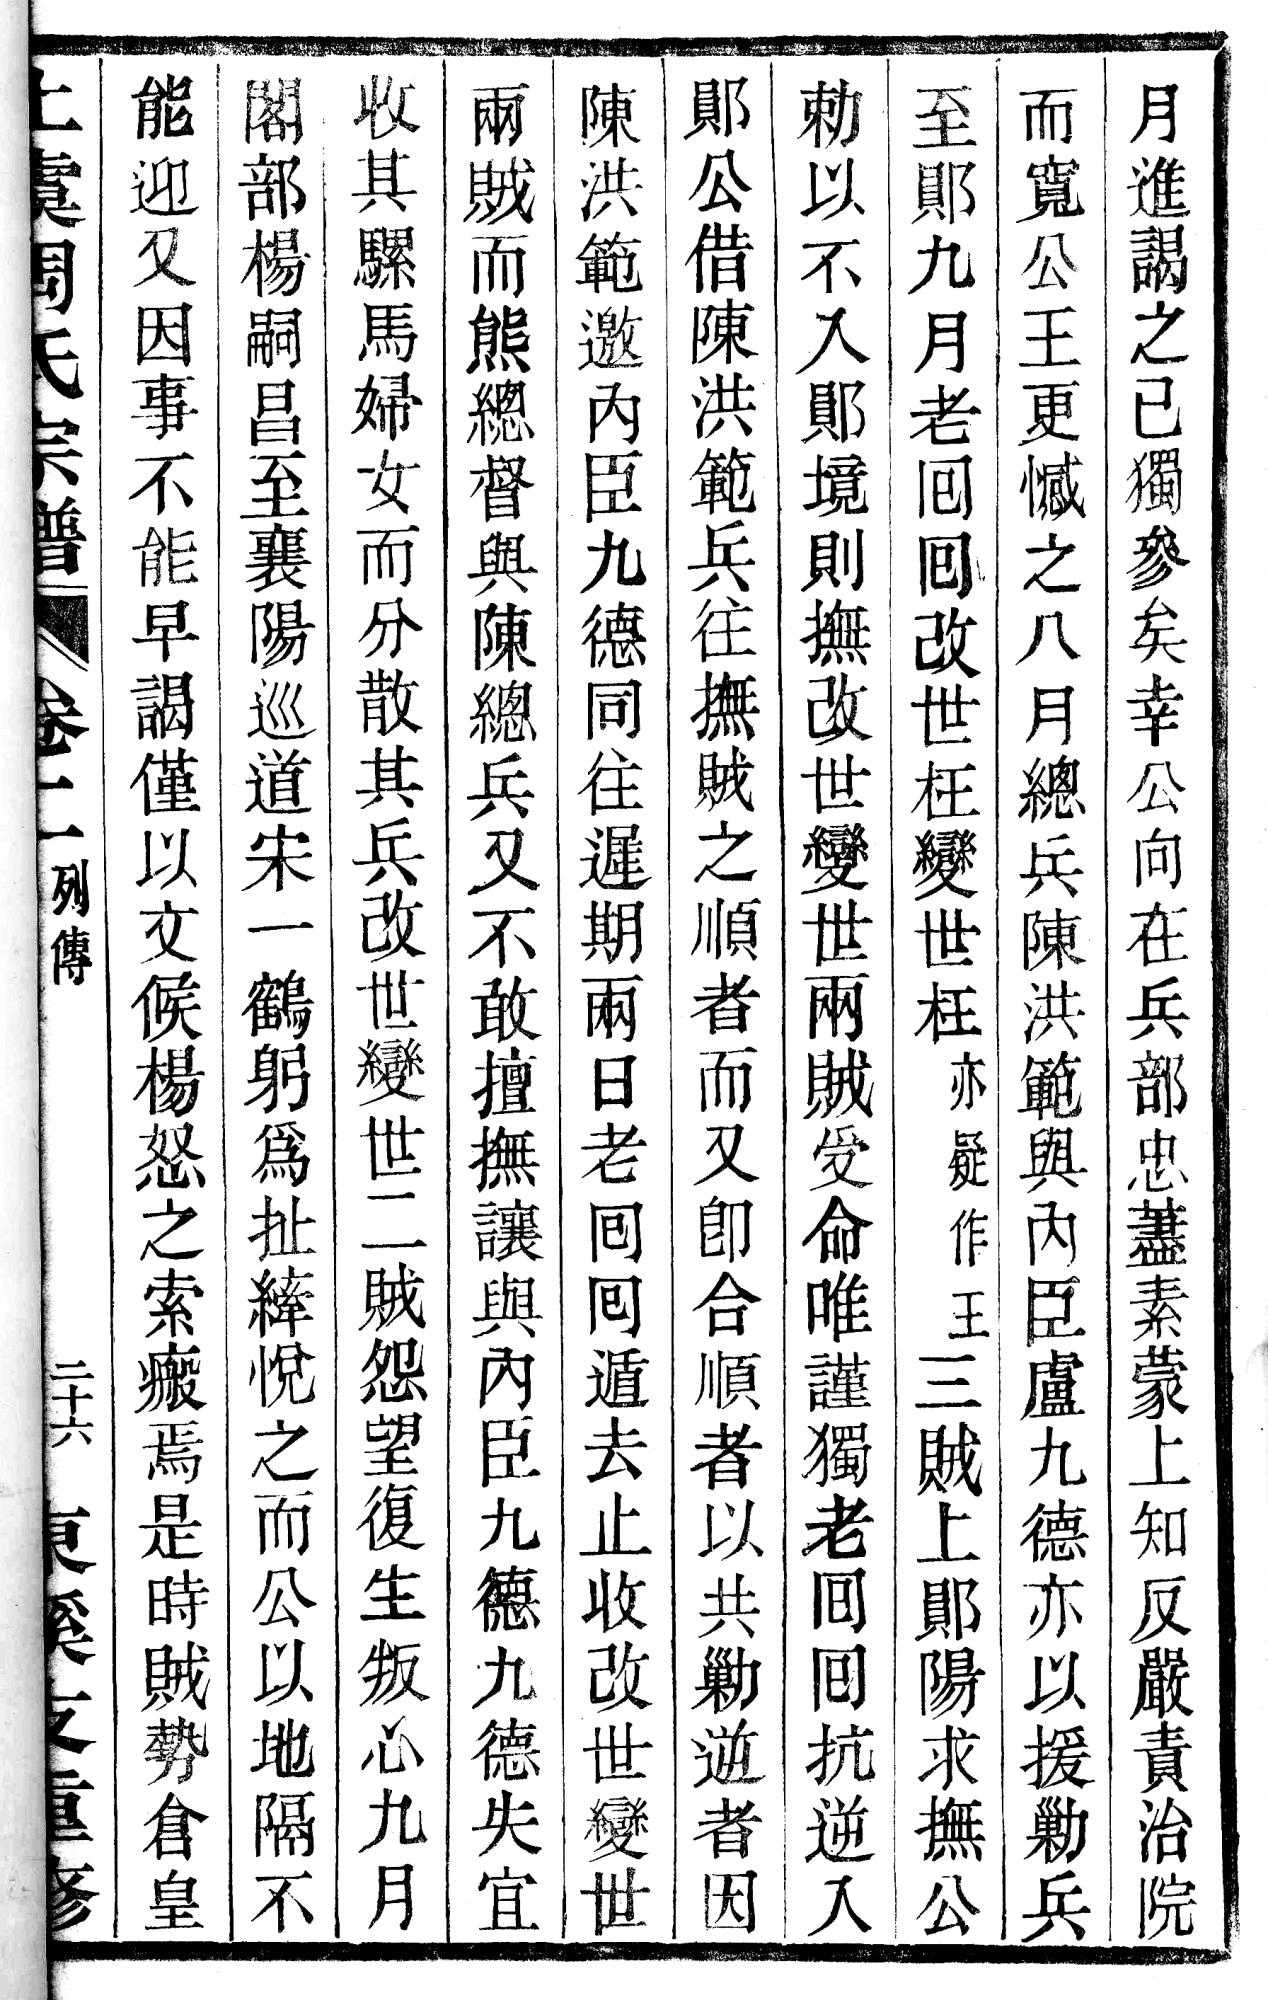 月進謁之已獨參矣幸公向在兵部忠藎素蒙上知反嚴責治院
而寬公王更憾之八月總兵陳洪範與內臣盧九德亦以援勦兵
至鄖九月老回回改世枉變世枉亦疑作王三賊上鄖陽求撫公
勅以不入鄖境則撫改世變世兩賊受命唯謹獨老回回抗逆入
鄖公借陳洪範兵往撫賊之順者而又卽合順者以共勦逆者因
陳洪範邀內臣九德同往遲期兩日老回回遁去止收改世變世
兩賊而熊總督與陳總兵又不敢擅撫讓與內臣九德九德失宜
收其騾馬婦女而分散其兵改世變世二賊怨望復生叛心九月
閣部楊嗣昌至襄陽巡道宋一鶴躬爲扯縴悅之而公以地隔不
能迎又因事不能早謁僅以文候楊怒之索瘢焉是時賊勢倉皇
上虞周氏宗譜 卷二 列傳 二十六 東溪支重修